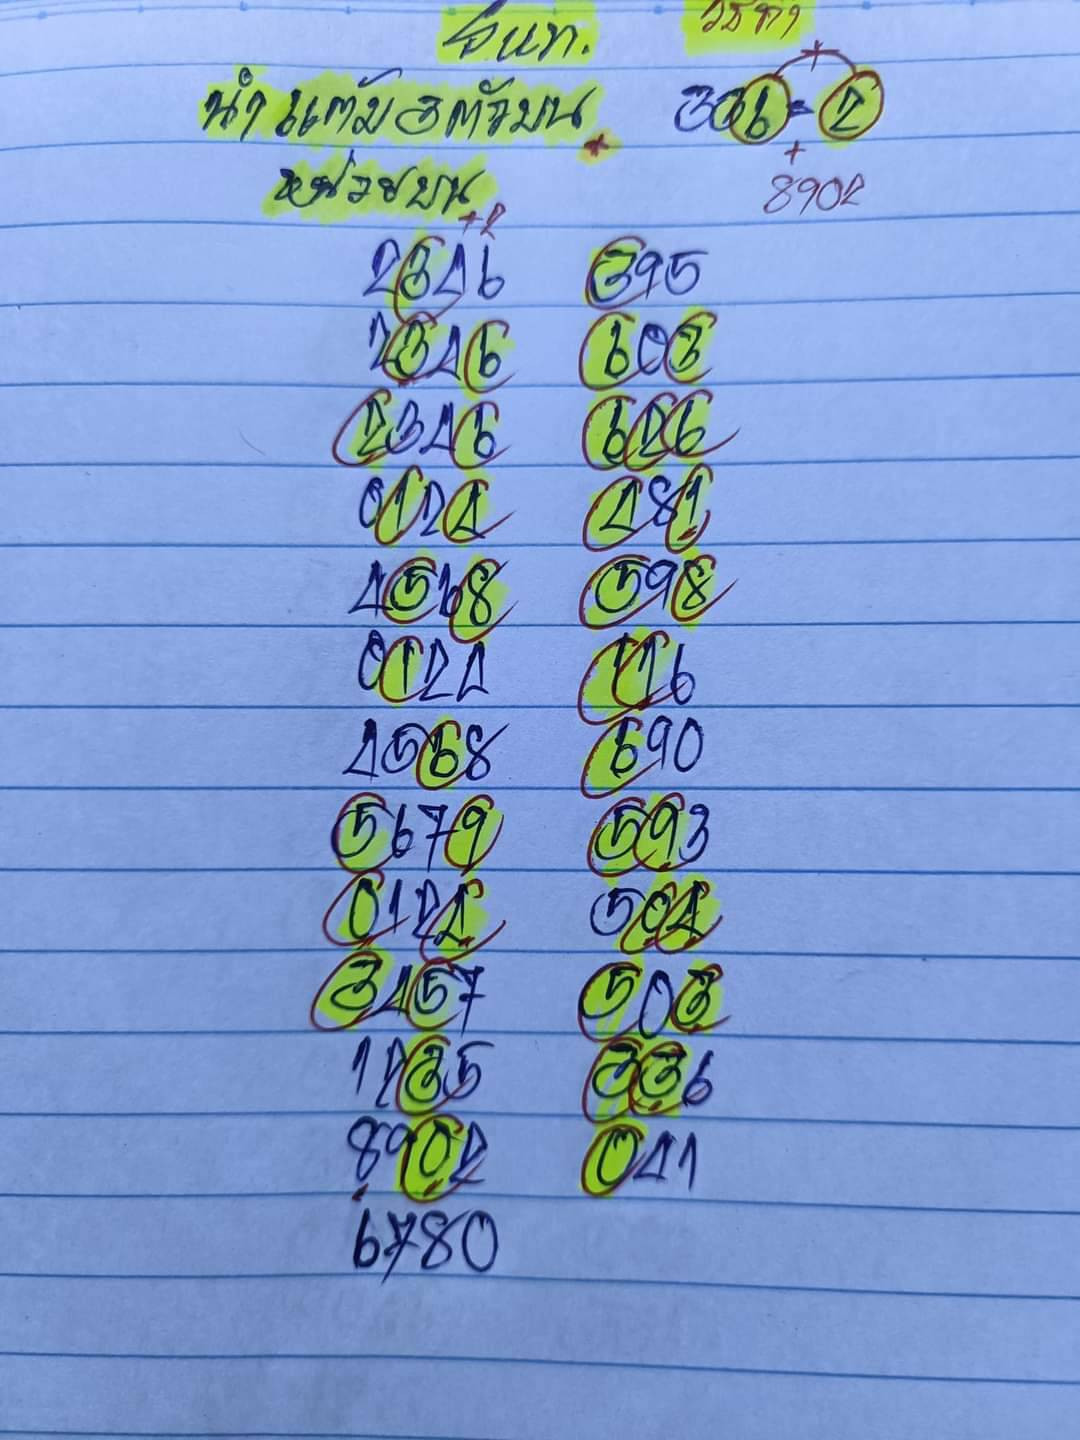 จันทร์. วิธีทำ
นำแต้ม 3 ตัวบน 336 = 2
+
หน่วยบน 8902
+2
2346 395
2346 603
2346 626
0124 481
4568 598
0124 116
4568 690
5679 593
0124 504
3457 503
1235 336
8902 041
6780